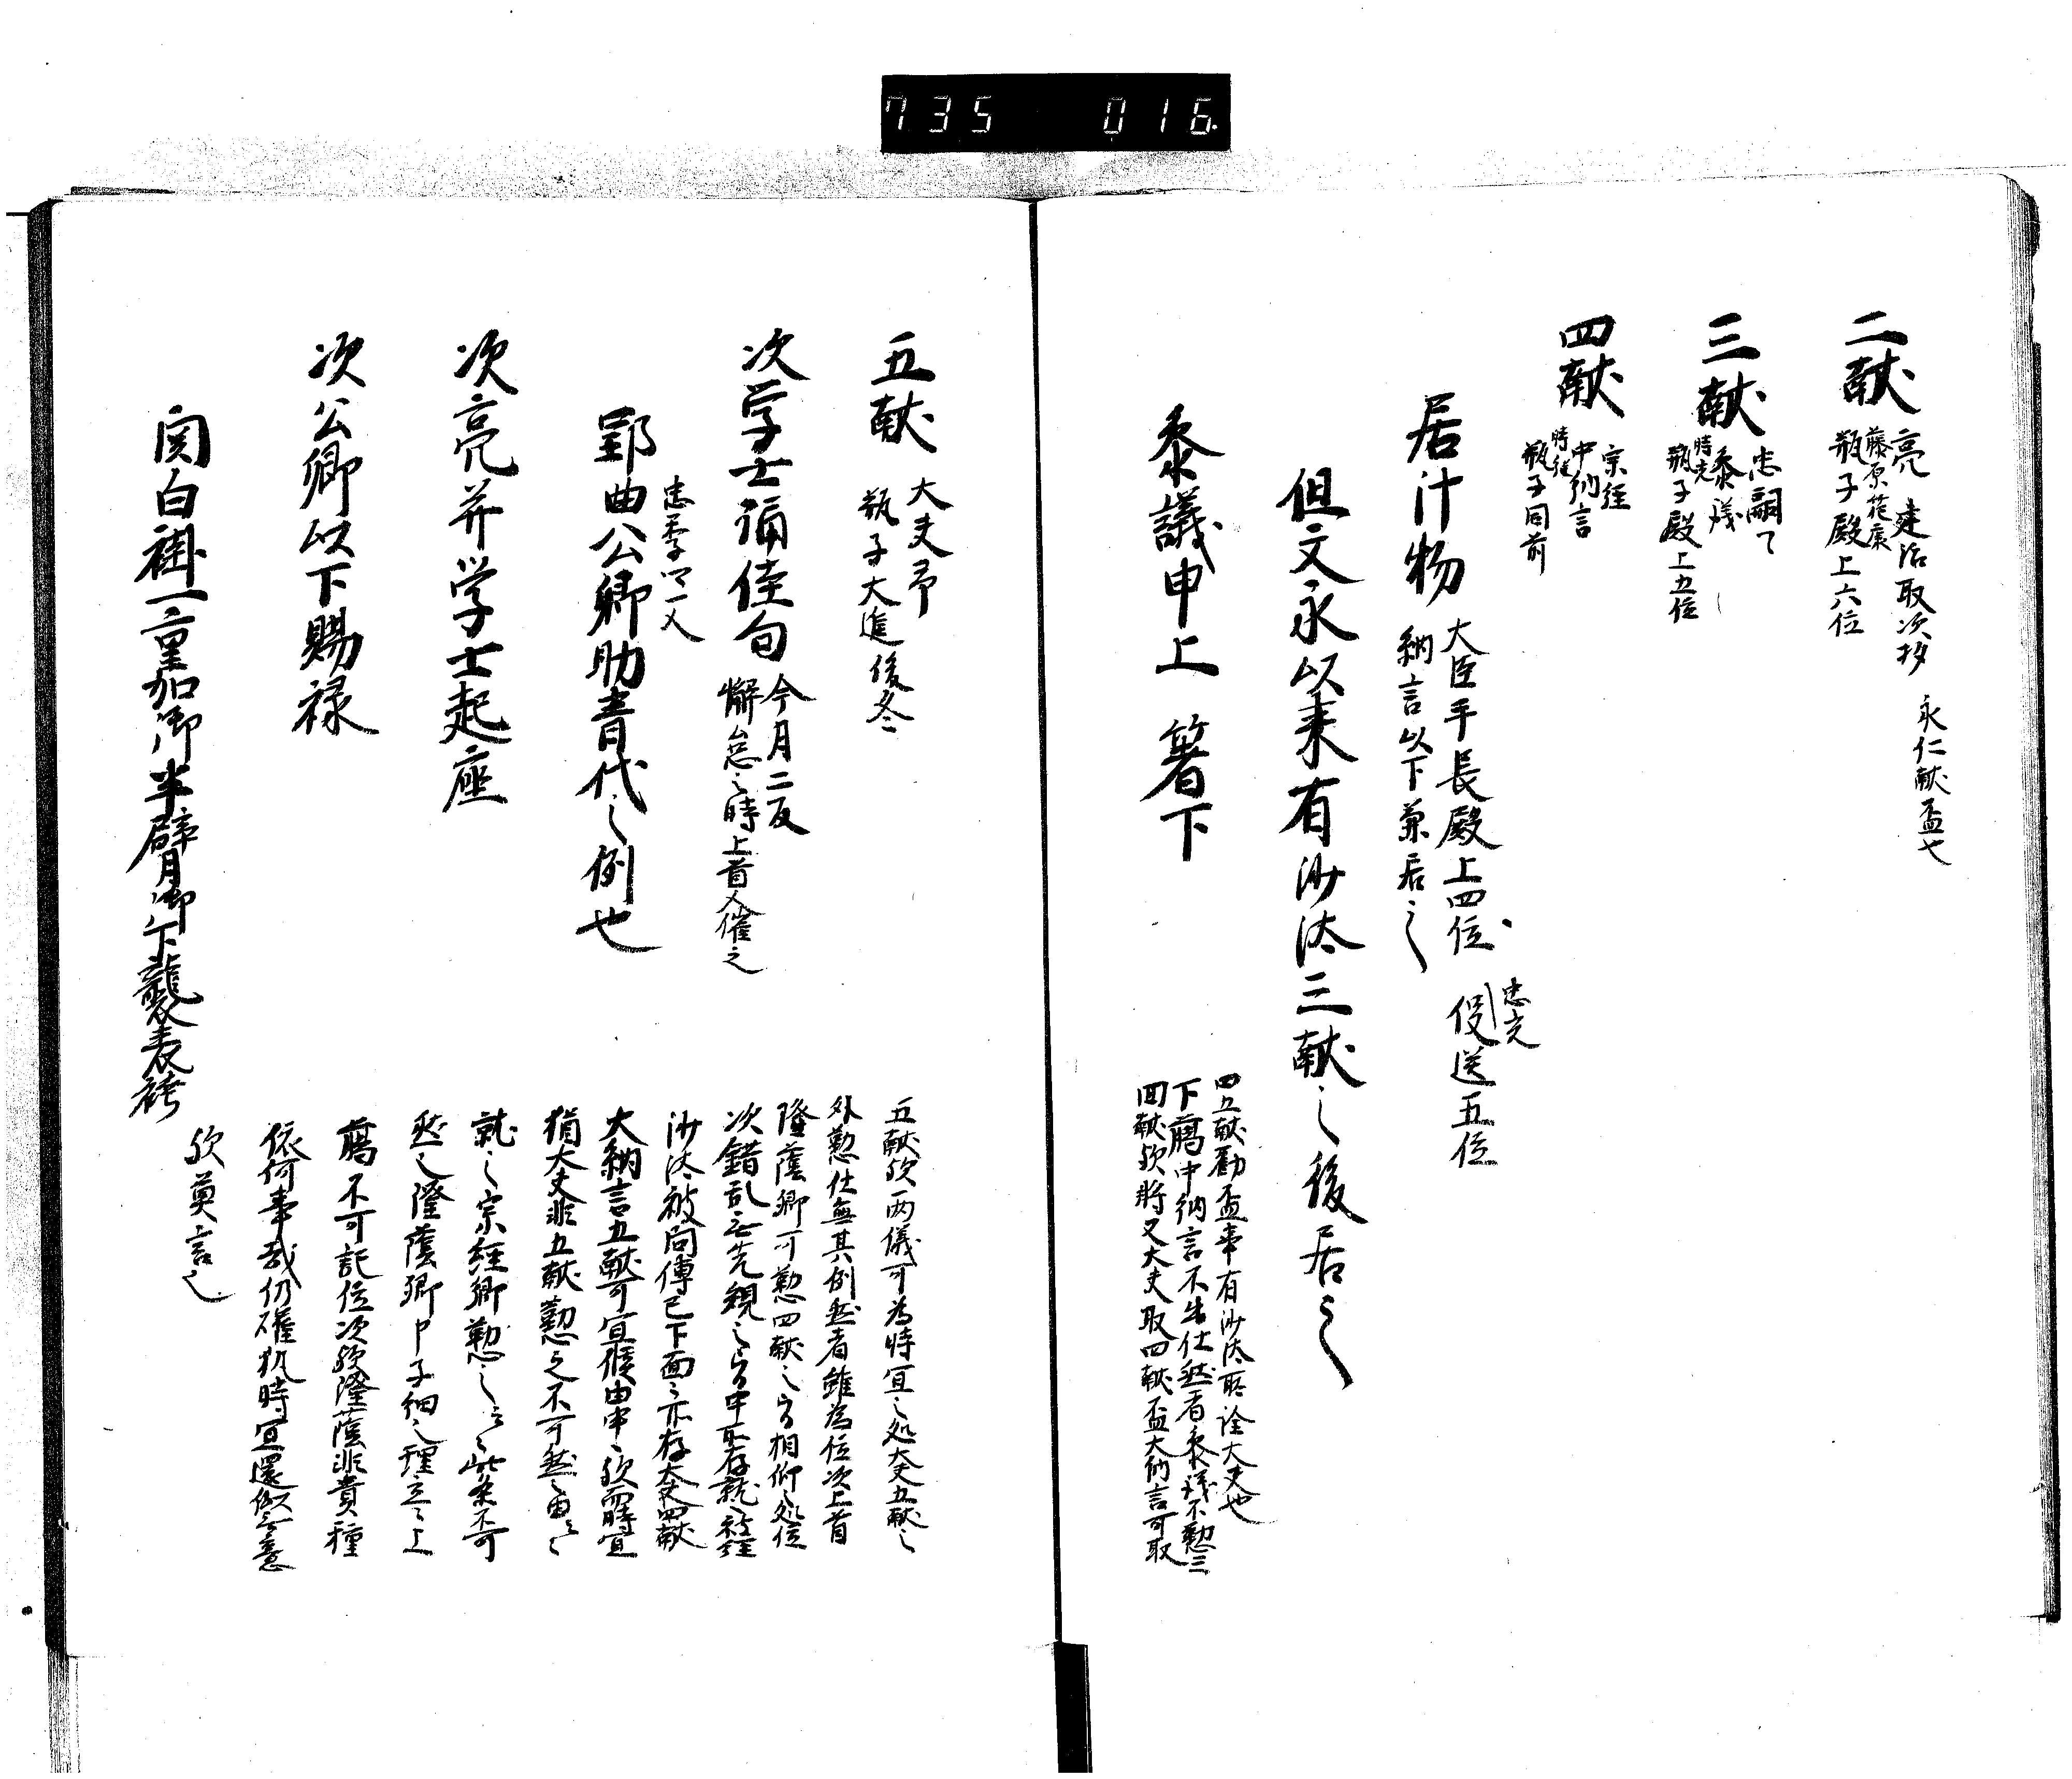 735 016
二献 亮 建治取次抄 永仁献盃也
藤原範康
瓶子殿上六位
三献 忠嗣了
参議
時光
瓶子殿上五位
四献 宗経
中納言
時経
瓶子同前
居汁物 大臣手長殿上四位 役送五位
忠光
納言以下兼居之
但文永以来有沙汰三献之後居之
参議申上 箸下
四五献勧盃事有沙汰所詮大夫也
下臈中納言不出仕然者参議不勤三
四献歟将又大夫取四献盃大納言可取
五献 大夫予
瓶子大進俊冬
五献歟両儀可為時宜之処大夫五献之
外勤仕無其例然者雖為位次上首
次学士誦佳句 今月二反
懈怠之時上首又催之
隆蔭卿可勤四献之由相仰之処位
次錯乱無先規之由申所存就被経
忠季一反
沙汰被問傅已下面々亦存大夫四献
郢曲公卿助音代之例也
大納言五献可宜候由申之歟時宜
猶大夫非五献勤之不可然之由云々
次亮并学士起座
就之宗経卿勤之云々此条不可
然之隆蔭卿申子細之理云々上
次公卿以下賜禄
臈不可託位次歟隆蔭非貴種
依何事哉仍確執時宜還似無意
関白褂一重加御半臂御下襲表袴
歟莫言之